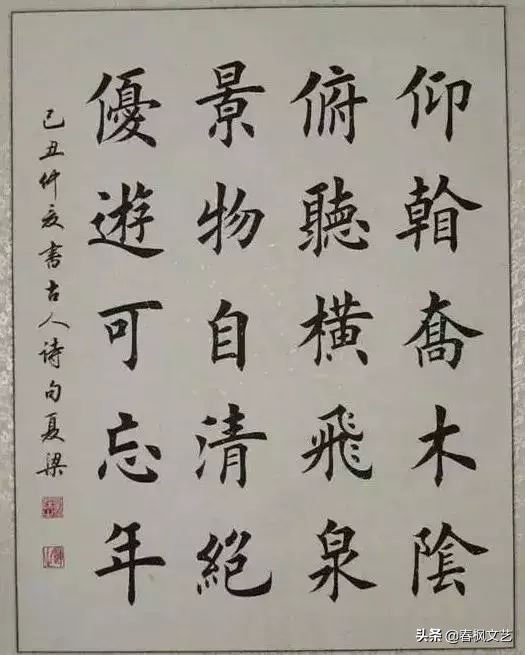 仰喬木陰
俯聽橫飛泉
景物自清絕
優遊可忘年
己丑仲夏書古人诗句夏梁
头条 @春枫文艺